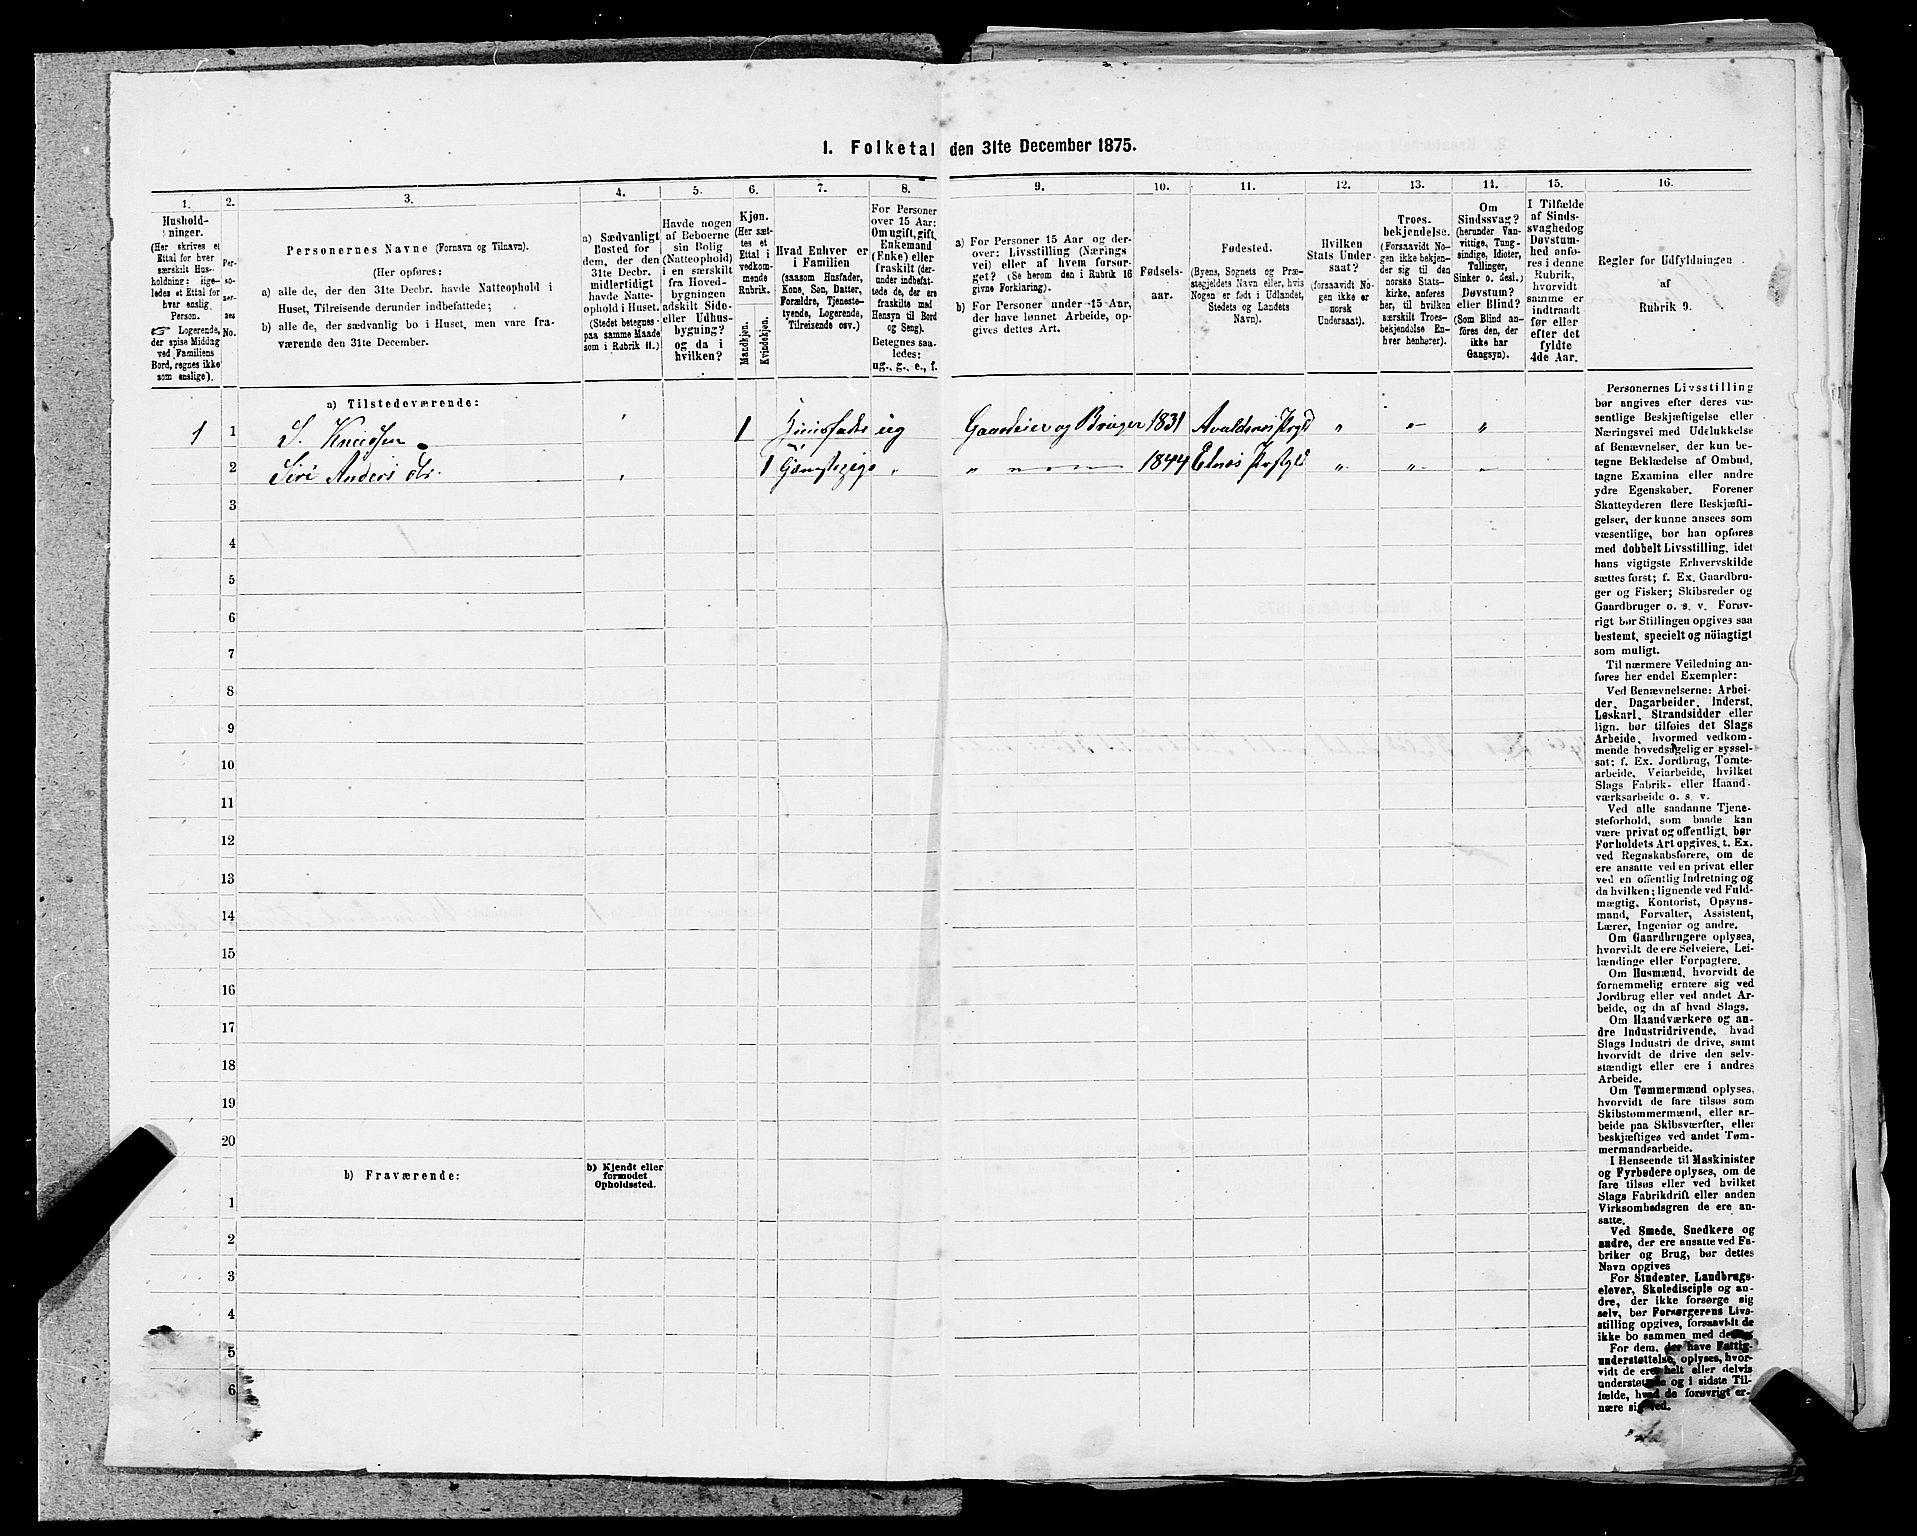 1. Folketal den 31te December 1875.
1. 2. 3. 4. 5. 6. 7. 8. 9. 10. 11. 12. 13. 14. 15. 16.
Hushold-
ninger.
(Her skrives et
Ettal for hver
særskilt Hus-
holdning; lige-
ledes et Ettal for
hver enslig
Person.
☞ Logerende,
der spise Middag
ved Familiens
Bord, regnes ikke
som enslige).
Per-
so-
ner-
nes
No.
Personernes Navne (Fornavn og Tilnavn).
(Her opføres:
a) alle de, der den 31te Decbr. havde Natteophold i
Huset, Tilreisende derunder indbefattede;
b) alle de, der sædvanlig bo i Huset, men vare fra-
værende den 31te December.
a) Sædvanligt
Bosted for
dem, der den
31te Decbr.
midlertidigt
havde Natte-
ophold i Huset.
(Stedet betegnes
paa samme Maade
som i Rubrik 11.)
Havde nogen
af Beboerne
sin Bolig
(Natteophold)
i en særskilt
fra Hoved-
bygningen
adskilt Side-
eller Udhus-
bygning?
og da i
hvilken?
Kjøn.
(Her sæt-
tes et
Ettal i
vedkom-
mende
Rubrik.
Mandkjøn.
Kvindekjøn.
Hvad Enhver er
i Familien
(saasom Husfader,
Kone, Søn, Datter,
Forældre, Tjeneste-
tyende, Logerende,
Tilreisende osv.)
For Personer
over 15 Aar:
Om ugift, gift,
Enkemand
(Enke) eller
fraskilt (der-
under indbefat-
tede de, der ere
fraskilte med
Hensyn til Bord
og Seng).
Betegnes saa-
ledes:
ug., g., e., f.
a) For Personer 15 Aar og der-
over: Livsstilling (Nærings
vei) eller af hvem forsør-
get? (Se herom den i Rubrik 16
givne Forklaring).
b) For Personer under 15 Aar,
der have lønnet Arbeide, op-
gives dettes Art.
Fødsels-
aar.
Fødested.
(Byens, Sognets og Præ-
stegjeldets Navn eller, hvis
Nogen er født i Udlandet,
Stedets og Landets
Navn).
Hvilken
Stats Under-
saat?
(forsaavidt No-
gen ikke er
norsk
Undersaat).
Troes-
bekjendelse.
(Forsaavidt No-
gen ikke bekjen-
der sig til den
norske Stats-
kirke, anføres
her, til hvilken
særskilt Troes-
bekjendelse En-
hver henhører).
Om
Sindssvag?
(herunder Van-
vittige, Tung-
sindige, Idioter,
Tullinger,
Sinker o. desl.)
Døvstum?
eller Blind?
(Som Blind an-
føres den, der
ikke har
Gangsyn).
I Tilfælde
af Sinds-
svaghed og
Døvstum-
hed anfø-
res i denne
Rubrik,
hvorvidt
samme er
indtraadt
før eller
efter det
fyldte
4de Aar.
Regler for Udfyldningen
af
Rubrik 9.
a) Tilstedeværende:
1 1 S. Knudsen 1 Huusfader ug Gaardeier og Bruger 1831 Avaldsnes Prgd " " "
2 Siri Anders dtr. 1 " " 1844 Etnæs " " "
3
4
5
6
7
8
9
10
11
12
13
14
15
16
17
18
19
20
b) Fraværende:
b) Kjendt eller
formodet
Opholdssted.
1
2
3
4
5
6
Personernes Livsstilling
bør angives efter deres væ-
sentlige Beskjæftigelse eller
Næringsvei med Udelukkelse
af Benævnelser, der kun be-
tegne Beklædelse af Ombud,
tagne Examina eller andre
ydre Egenskaber. Forener
Skatteyderen flere Beskjæfti-
gelser, der kunne ansees som
væsentlige, bør han opføres
med dobbelt Livsstilling, idet
hans vigtigste Erhvervskilde
sættes først; f. Ex. Gaardbru-
ger og Fisker; Skibsreder og
Gaardbruger o. s. v. Forøv-
rigt bør Stillingen opgives saa
bestemt, specielt og nöiagtigt
som muligt.
Til nærmere Veiledning an-
føres her endel Exempler:
Ved Benævnelserne: Arbei-
der, Dagarbeider, Inderst,
Løskarl, Strandsidder eller
lign. bør tilføies det Slags
Arbeide, hvormed vedkom-
mende hovedsagelig er syssel-
sat; f. Ex. Jordbrug, Tomte-
arbeide, Veiarbeide, hvilket
Slags Fabrik- eller Haand-
værksarbeide o. s. v.
Ved alle saadanne Tjene-
steforhold, som baade kan
være privat og offentligt, bør
Forholdets Art opgives, t. Ex.
ved Regnskabsførere, om de
ere ansatte ved en privat eller
ved en offentlig Indretning og
da hvilken; lignende ved Fuld-
mægtig, Kontorist, Opsyns-
mand, Forvalter, Assistent,
Lærer, Ingeniør og andre.
Om Gaardbrugere oplyses,
hvorvidt de ere Selveiere, Lei-
lændinge eller Forpagtere.
Om Husmænd, hvorvidt de
fornemmelig ernære sig ved
Jordbrug eller ved andet Ar-
beide, og da af hvad Slags.
Om Haandværkere og an-
dre Industridrivende, hvad
Slags Industri de drive, samt
hvorvidt de drive den selv-
stændigt eller ere i andres
Arbeide.
Om Tømmermænd oplyses,
hvorvidt de fare tilsøs som
Skibstømmermænd, eller ar-
beide paa Skibsværfter, eller
beskjæftiges ved andet Tøm-
mermandsarbeide.
I Henseende til Maskinister
og Fyrbødere oplyses, om de
fare tilsøs eller ved hvilket
Slags Fabrikdrift eller anden
Virksomhedsgren de ere an-
satte.
Ved Smede, Snedkere og
andre, der ere ansatte ved Fa-
briker og Brug, bør dettes
Navn opgives
For Studenter, Landbrugs-
elever, Skoledisciple og an-
dre, der ikke forsørge sig
selv, bør Forsørgerens Livs-
stilling opgives, forsaavidt de
ikke bo sammen med denne
For dem, der have Fattig-
understøttelse, oplyses, hvor-
vidt de ere helt eller delvis
understøttede og i sidste Til-
fælde, hvad de forøvrigt er-
nære sig ved.